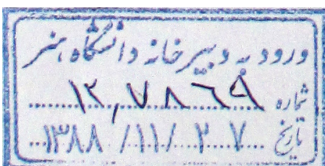 ورود به دبیرخانه دانشگاه هنر
شماره ۱۳,۷۸۶۹
تاریخ ۱۳۸۸/۱۱/۲۷